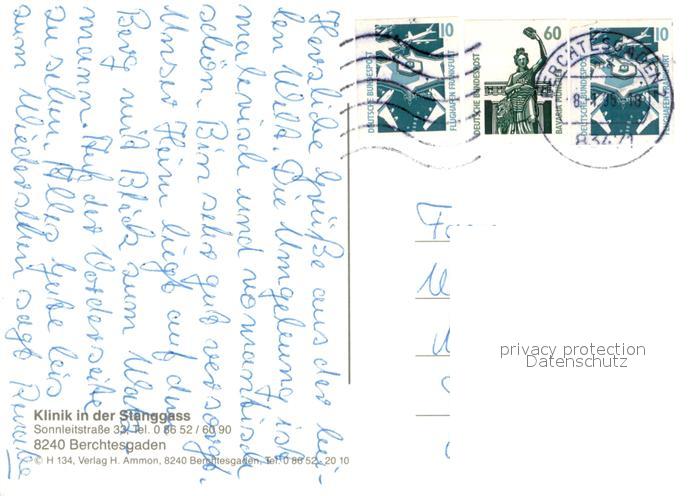 Herzliche Grüße aus der hei-
len Welt. Die Umgebung ist
malerisch und romantisch
schön. Bin sehr gut versorgt.
Unser Heim liegt auf dem
Berg mit Blick zum Watz-
mann. Auf der Vorderseite
zu sehen. Alles Gute bis
zum Wiedersehen sagt
10
DEUTSCHE BUNDESPOST
FLUGHAFEN FRANKFURT
60
DEUTSCHE BUNDESPOST
BAVARIA MÜNCHEN
10
DEUTSCHE BUNDESPOST
FLUGHAFEN FRANKFURT
BERCHTESGADEN
privacy protection
Datenschutz
Klinik in der Stanggass
Sonnleitstraße 33, Tel. 0 86 52 / 60 90
8240 Berchtesgaden
© H 134, Verlag H. Ammon, 8240 Berchtesgaden, Tel. 0 86 52 - 20 10